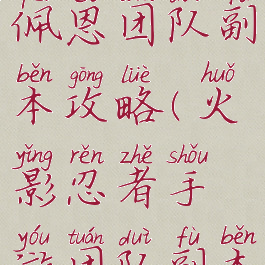 佩恩团队副
běn gōng lüè huǒ
本攻略(火
yǐng rěn zhě shǒu
影忍者手
yóu tuán duì fù běn
游团队副本